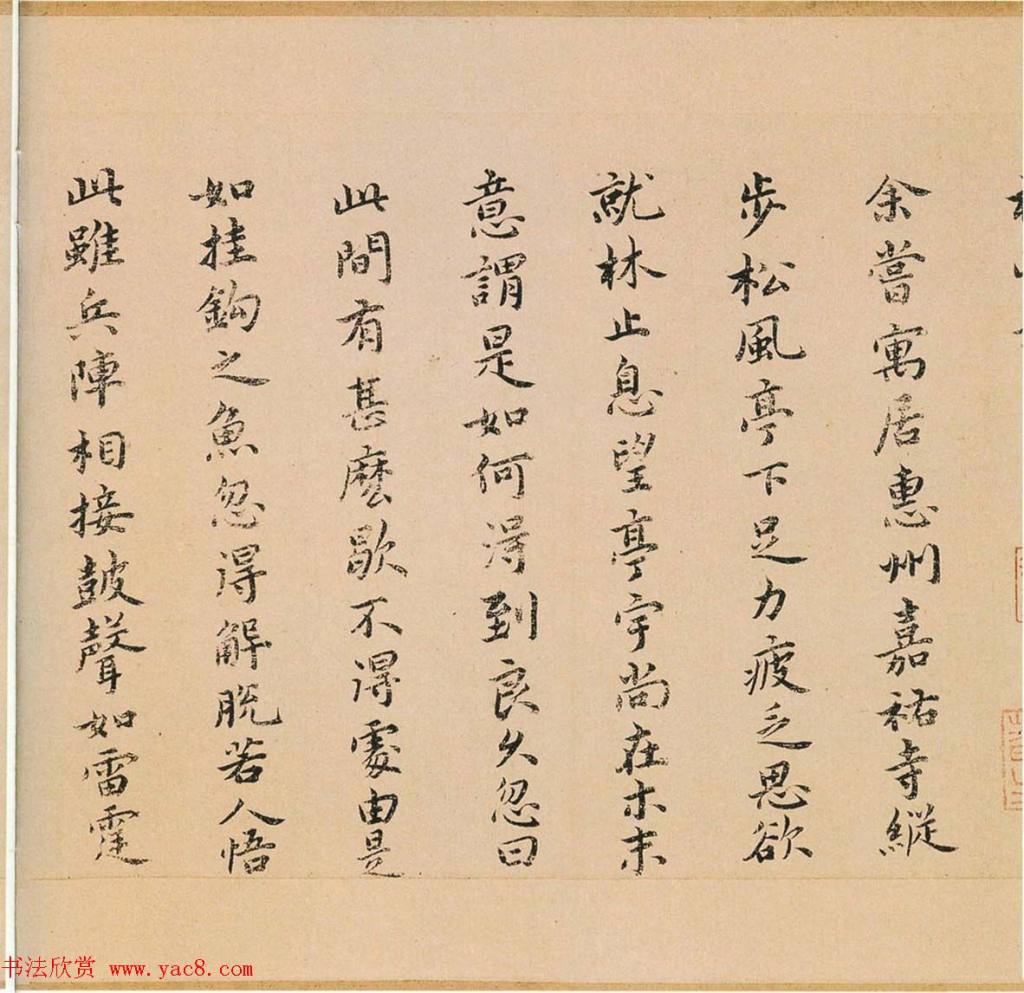 余嘗寓居惠州嘉祐寺縱
步松風亭下足力疲乏思欲
就林止息望亭宇尚在木末
意謂是如何得到良久忽曰
此間有甚麽歇不得處由是
如挂鈎之魚忽得解脫若人悟
此雖兵陣相接鼓聲如雷霆
书法欣赏 www.yac8.com